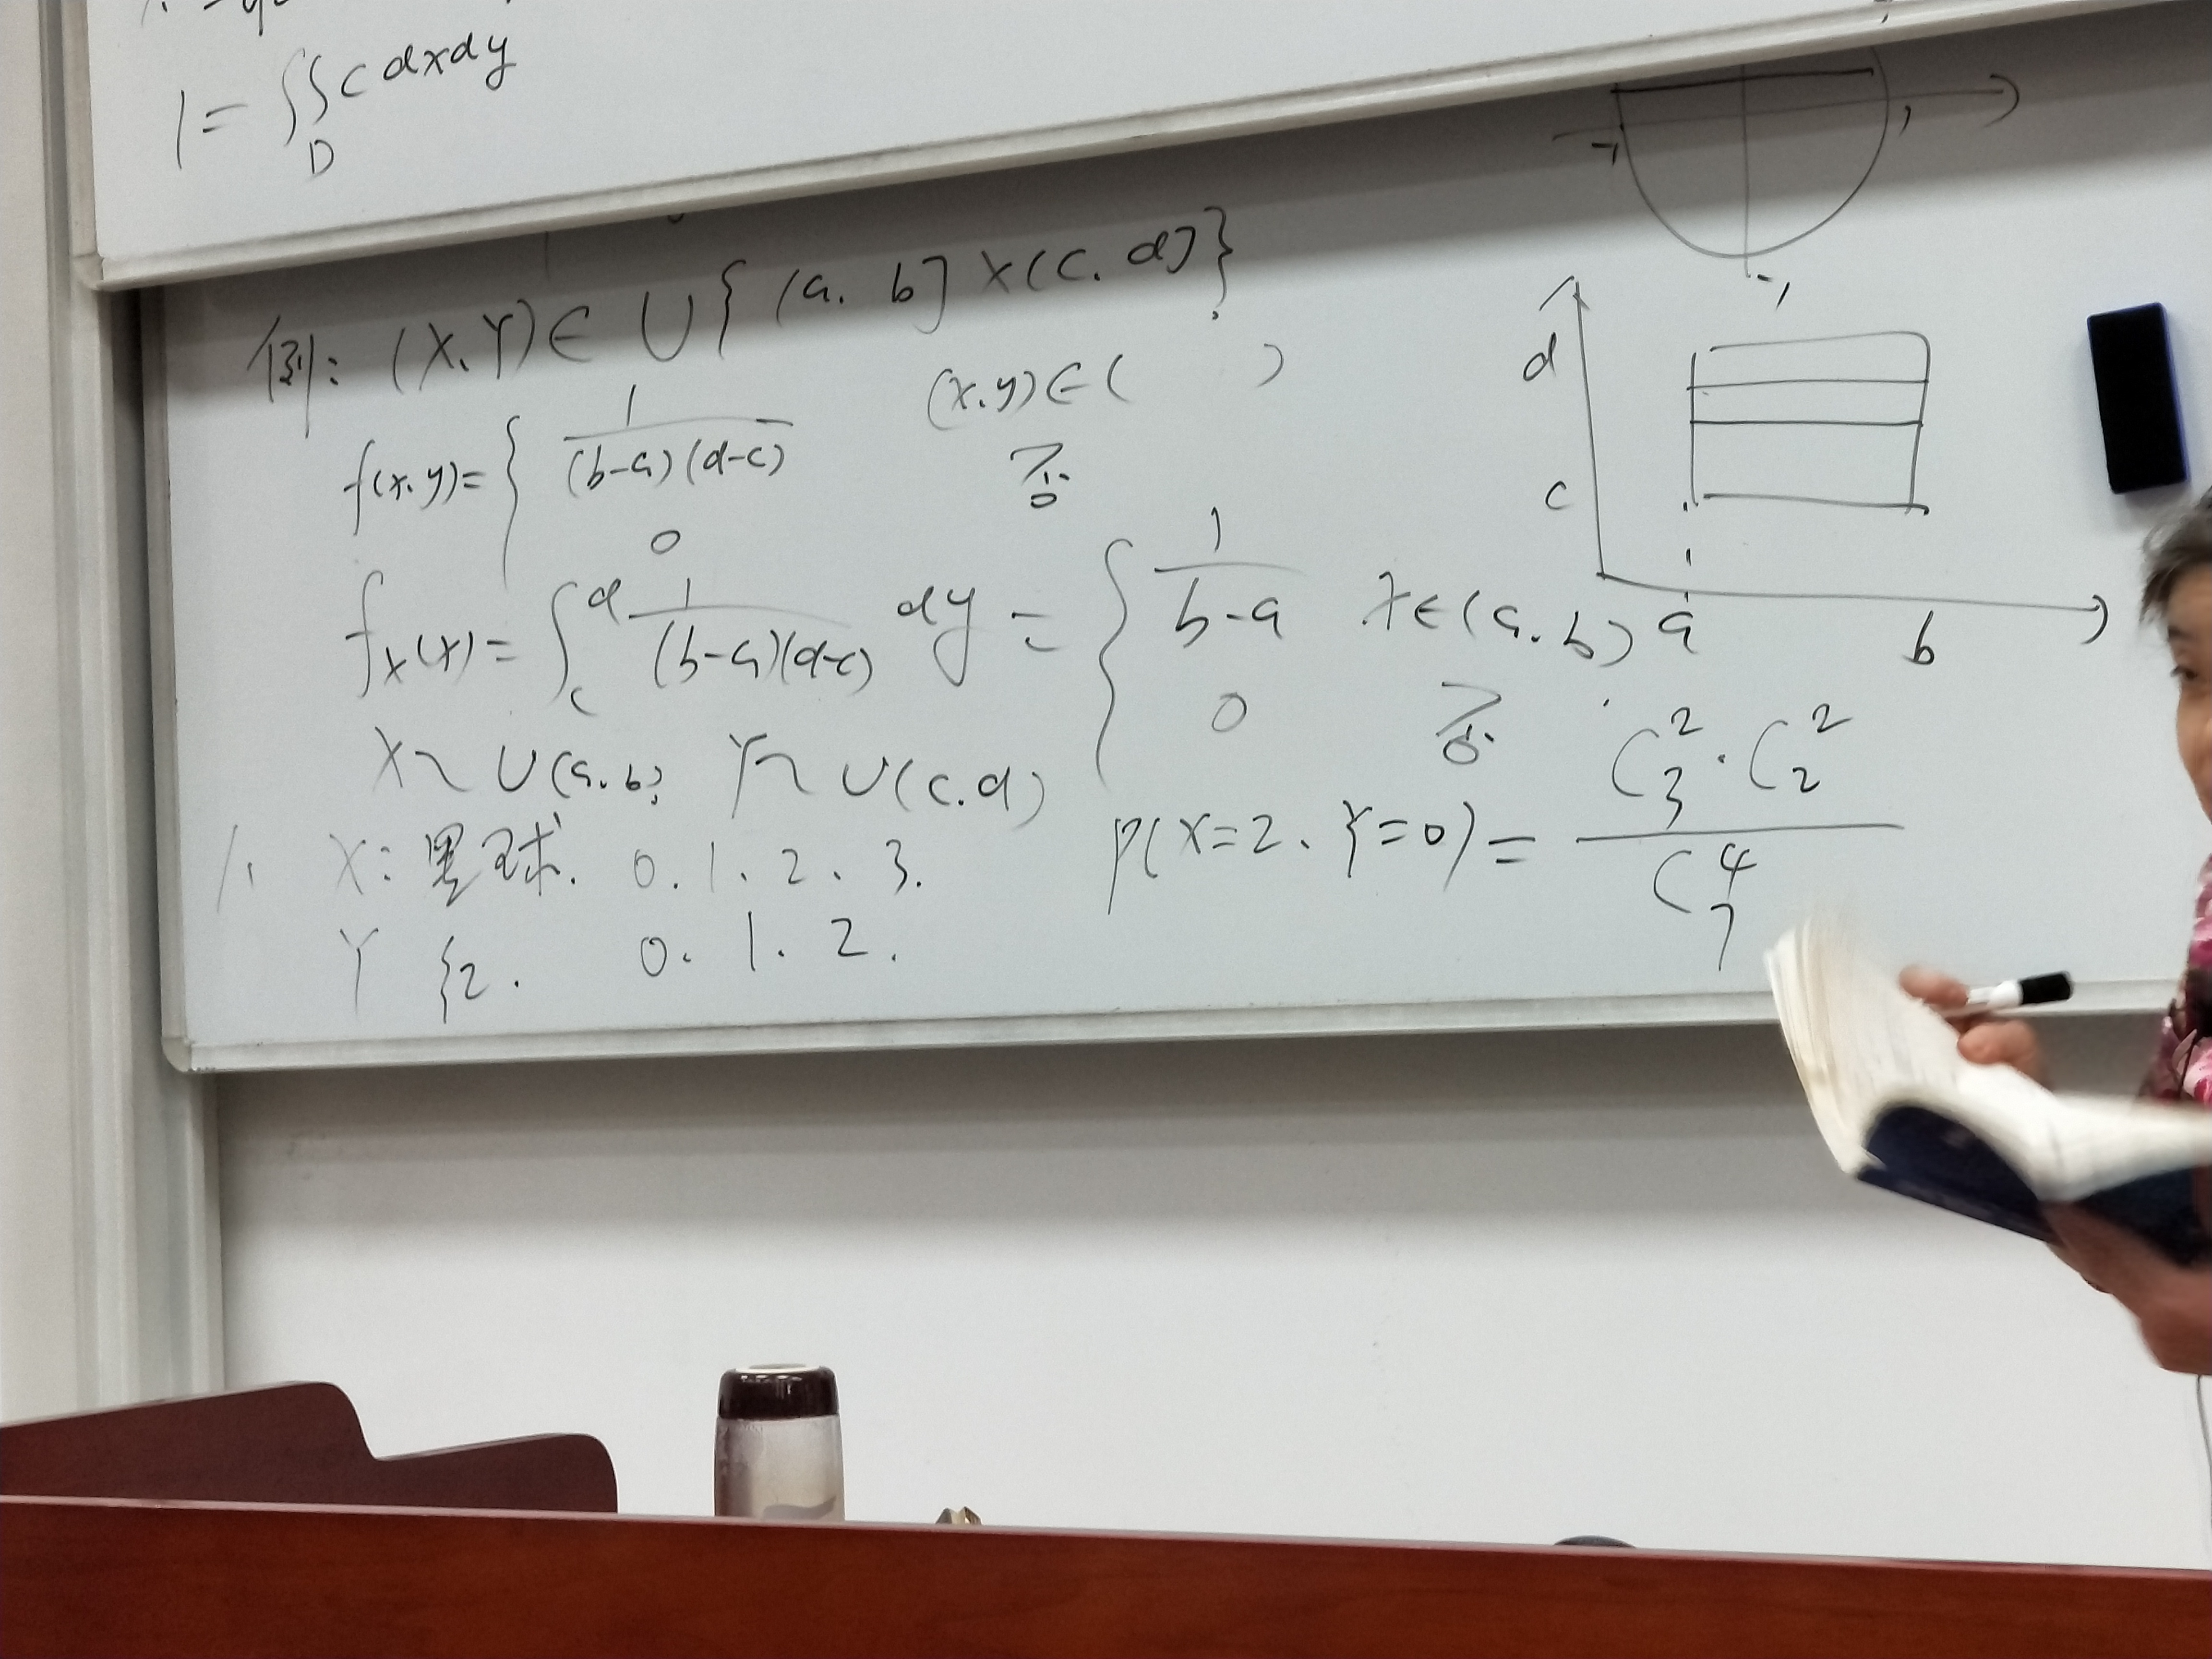 1 = ∬_D c dxdy
-1
1
-1
例: (X, Y) ∈ U{(a, b] × (c, d]}
f(x, y) = { 1/((b-a)(d-c)) (x, y) ∈ ( )
0 否
f_X(x) = ∫_c^d 1/((b-a)(d-c)) dy = { 1/(b-a) x ∈ (a, b)
0 否
d
c
a
b
X ~ U(a, b) Y ~ U(c, d)
1. X: 黑球. 0. 1. 2. 3.
Y 红. 0. 1. 2.
P(X=2, Y=0) = (C_3^2 · C_2^2)/C_7^4